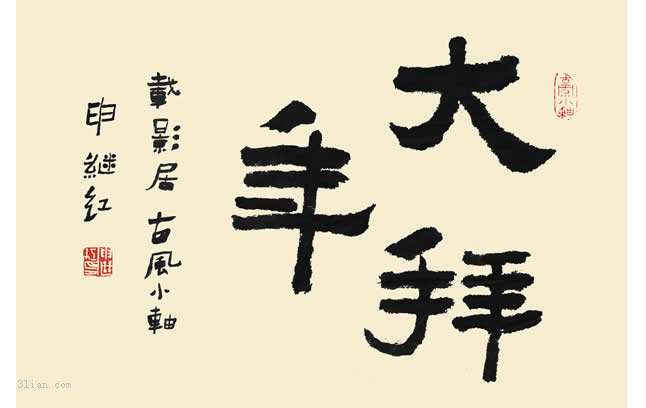 大拜
年
載影居 古風小軸
申継红
3lian.com